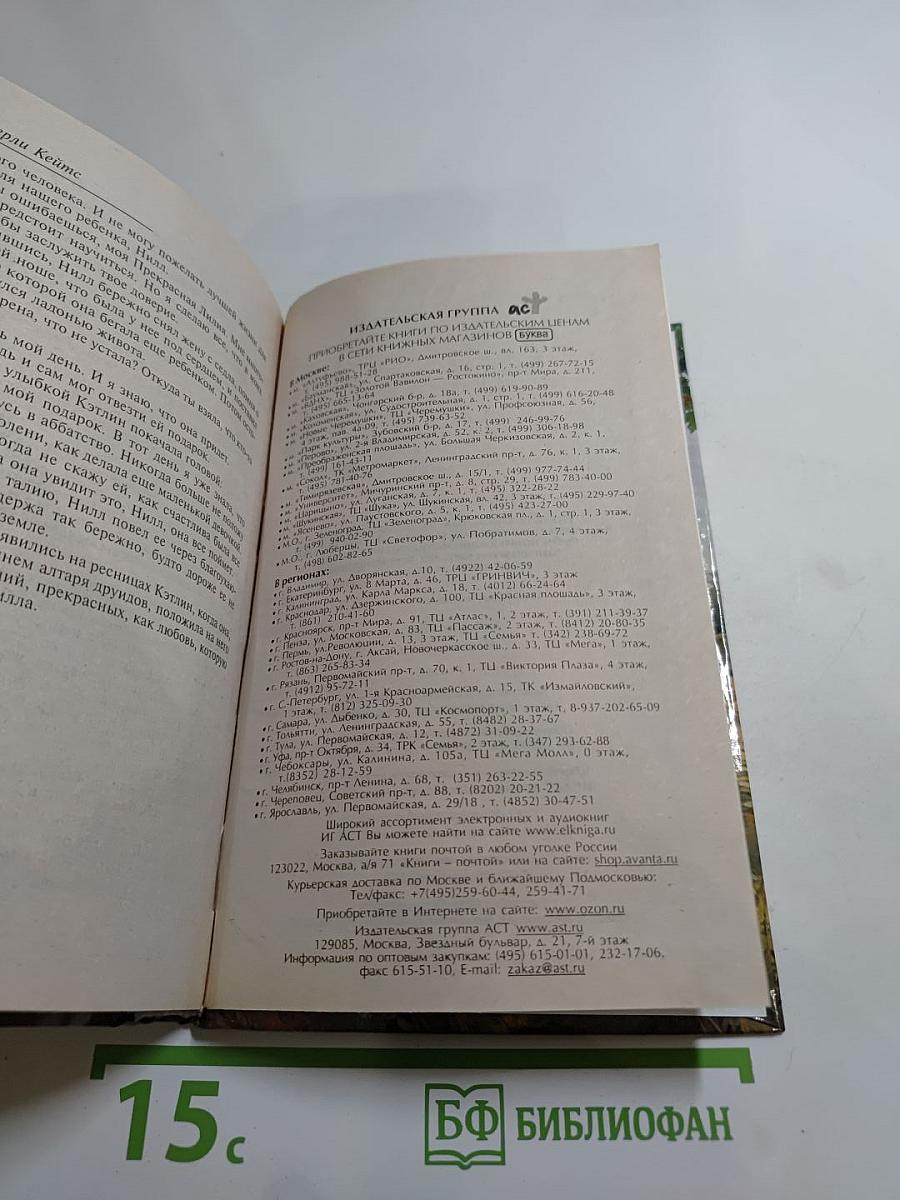 ерли Кейтс
ого человека. И не могу пожелать лучшей жизни для
ля нашего ребенка, Нилл.
ы ошибаешься, моя Прекрасная Лилия. Мне мно
редстоит научиться. Но я сделаю все, что в моих
бы заслужить твое доверие.
вшись, Нилл бережно снял жену с седла, помня о
ой ноше, что была у нее под сердцем, и поставил
о которой она бегала еще ребенком. Потом осто-
лся ладонью живота.
рена, что не устала? Откуда ты взяла, что кто-то
ь мой день. И я знаю, что она придет.
дь и сам мог отвезти ей подарок.
улыбкой Кэтлин покачала головой:
мой подарок. В тот день я уже знала, что
усь в аббатство. Никогда больше не положу
олени, как делала еще маленькой девочкой.
огда не скажу ей, как счастлива была все
а она увидит это, Нилл, она все поймет.
талию, Нилл повел ее через благоухаю-
держа так бережно, будто дороже ее не
земле.
явились на ресницах Кэтлин, когда она,
нем алтаря друидов, положила на него
ний, прекрасных, как любовь, которую
илла.
ИЗДАТЕЛЬСКАЯ ГРУППА аст
ПРИОБРЕТАЙТЕ КНИГИ ПО ИЗДАТЕЛЬСКИМ ЦЕНАМ
В СЕТИ КНИЖНЫХ МАГАЗИНОВ БУКВА
В Москве:
• м. «Алтуфьево», ТРЦ «РИО», Дмитровское ш., вл. 163, 3 этаж,
т. (495) 988-51-28
• м. «Бауманская», ул. Спартаковская, д. 16, стр. 1, т. (499) 267-72-15
• м. «ВДНХ», ТЦ «Золотой Вавилон — Ростокино», пр-т Мира, д. 211,
т. (495) 665-13-64
• м. «Каховская», Чонгарский б-р, д. 18а, т. (499) 619-90-89
• м. «Коломенская», ул. Судостроительная, д. 1, стр. 1, т. (499) 616-20-48
• м. «Новые Черемушки», ТЦ «Черемушки», ул. Профсоюзная, д. 56,
4 этаж, пав. 4а-09, т. (495) 739-63-52
• м. «Парк культуры», Зубовский б-р, д. 17, т. (499) 246-99-76
• м. «Перово», ул. 2-я Владимирская, д. 52, к. 2, т. (499) 306-18-98
• м. «Преображенская площадь», ул. Большая Черкизовская, д. 2, к. 1,
т. (499) 161-43-11
• м. «Сокол», ТК «Метромаркет», Ленинградский пр-т, д. 76, к. 1, 3 этаж,
т. (495) 781-40-76
• м. «Тимирязевская», Дмитровское ш., д. 15/1, т. (499) 977-74-44
• м. «Университет», Мичуринский пр-т, д. 8, стр. 29, т. (499) 783-40-00
• м. «Царицыно», ул. Луганская, д. 7, к. 1, т. (495) 322-28-22
• м. «Щукинская», ТЦ «Щука», ул. Щукинская, вл. 42, 3 этаж, т. (495) 229-97-40
• м. «Ясенево», ул. Паустовского, д. 5, к. 1, т. (495) 423-27-00
• М.О., г. Зеленоград, ТЦ «Зеленоград», Крюковская пл., д. 1, стр. 1, 3 этаж,
т. (499) 940-02-90
• М.О., г. Люберцы, ТЦ «Светофор», ул. Побратимов, д. 7, 4 этаж,
т. (498) 602-82-65
В регионах:
• г. Владимир, ул. Дворянская, д.10, т. (4922) 42-06-59
• г. Екатеринбург, ул. 8 Марта, д. 46, ТРЦ «ГРИНВИЧ», 3 этаж
• г. Калининград, ул. Карла Маркса, д. 18, т. (4012) 66-24-64
• г. Краснодар, ул. Дзержинского, д. 100, ТЦ «Красная площадь», 3 этаж,
т. (861) 210-41-60
• г. Красноярск, пр-т Мира, д. 91, ТЦ «Атлас», 1, 2 этаж, т. (391) 211-39-37
• г. Пенза, ул. Московская, д. 83, ТЦ «Пассаж», 2 этаж, т. (8412) 20-80-35
• г. Пермь, ул.Революции, д. 13, 3 этаж, ТЦ «Семья» т. (342) 238-69-72
• г. Ростов-на-Дону, г. Аксай, Новочеркасское ш., д. 33, ТЦ «Мега», 1 этаж,
т. (863) 265-83-34
• г. Рязань, Первомайский пр-т, д. 70, к. 1, ТЦ «Виктория Плаза», 4 этаж,
т. (4912) 95-72-11
• г. С.-Петербург, ул. 1-я Красноармейская, д. 15, ТК «Измайловский»,
1 этаж, т. (812) 325-09-30
• г. Самара, ул. Дыбенко, д. 30, ТЦ «Космопорт», 1 этаж, т. 8-937-202-65-09
• г. Тольятти, ул. Ленинградская, д. 55, т. (8482) 28-37-67
• г. Тула, ул. Первомайская, д. 12, т. (4872) 31-09-22
• г. Уфа, пр-т Октября, д. 34, ТРК «Семья», 2 этаж, т. (347) 293-62-88
• г. Чебоксары, ул. Калинина, д. 105а, ТЦ «Мега Молл», 0 этаж,
т.(8352) 28-12-59
• г. Челябинск, пр-т Ленина, д. 68, т. (351) 263-22-55
• г. Череповец, Советский пр-т, д. 88, т. (8202) 20-21-22
• г. Ярославль, ул. Первомайская, д. 29/18 , т. (4852) 30-47-51
Широкий ассортимент электронных и аудиокниг
ИГ АСТ Вы можете найти на сайте www.elkniga.ru
Заказывайте книги почтой в любом уголке России
123022, Москва, а/я 71 «Книги – почтой» или на сайте: shop.avanta.ru
Курьерская доставка по Москве и ближайшему Подмосковью:
Тел/факс: +7(495)259-60-44, 259-41-71
Приобретайте в Интернете на сайте: www.ozon.ru
Издательская группа АСТ www.ast.ru
129085, Москва, Звездный бульвар, д. 21, 7-й этаж
Информация по оптовым закупкам: (495) 615-01-01, 232-17-06,
факс 615-51-10, E-mail: zakaz@ast.ru
15 с
БФ БИБЛИОФАН